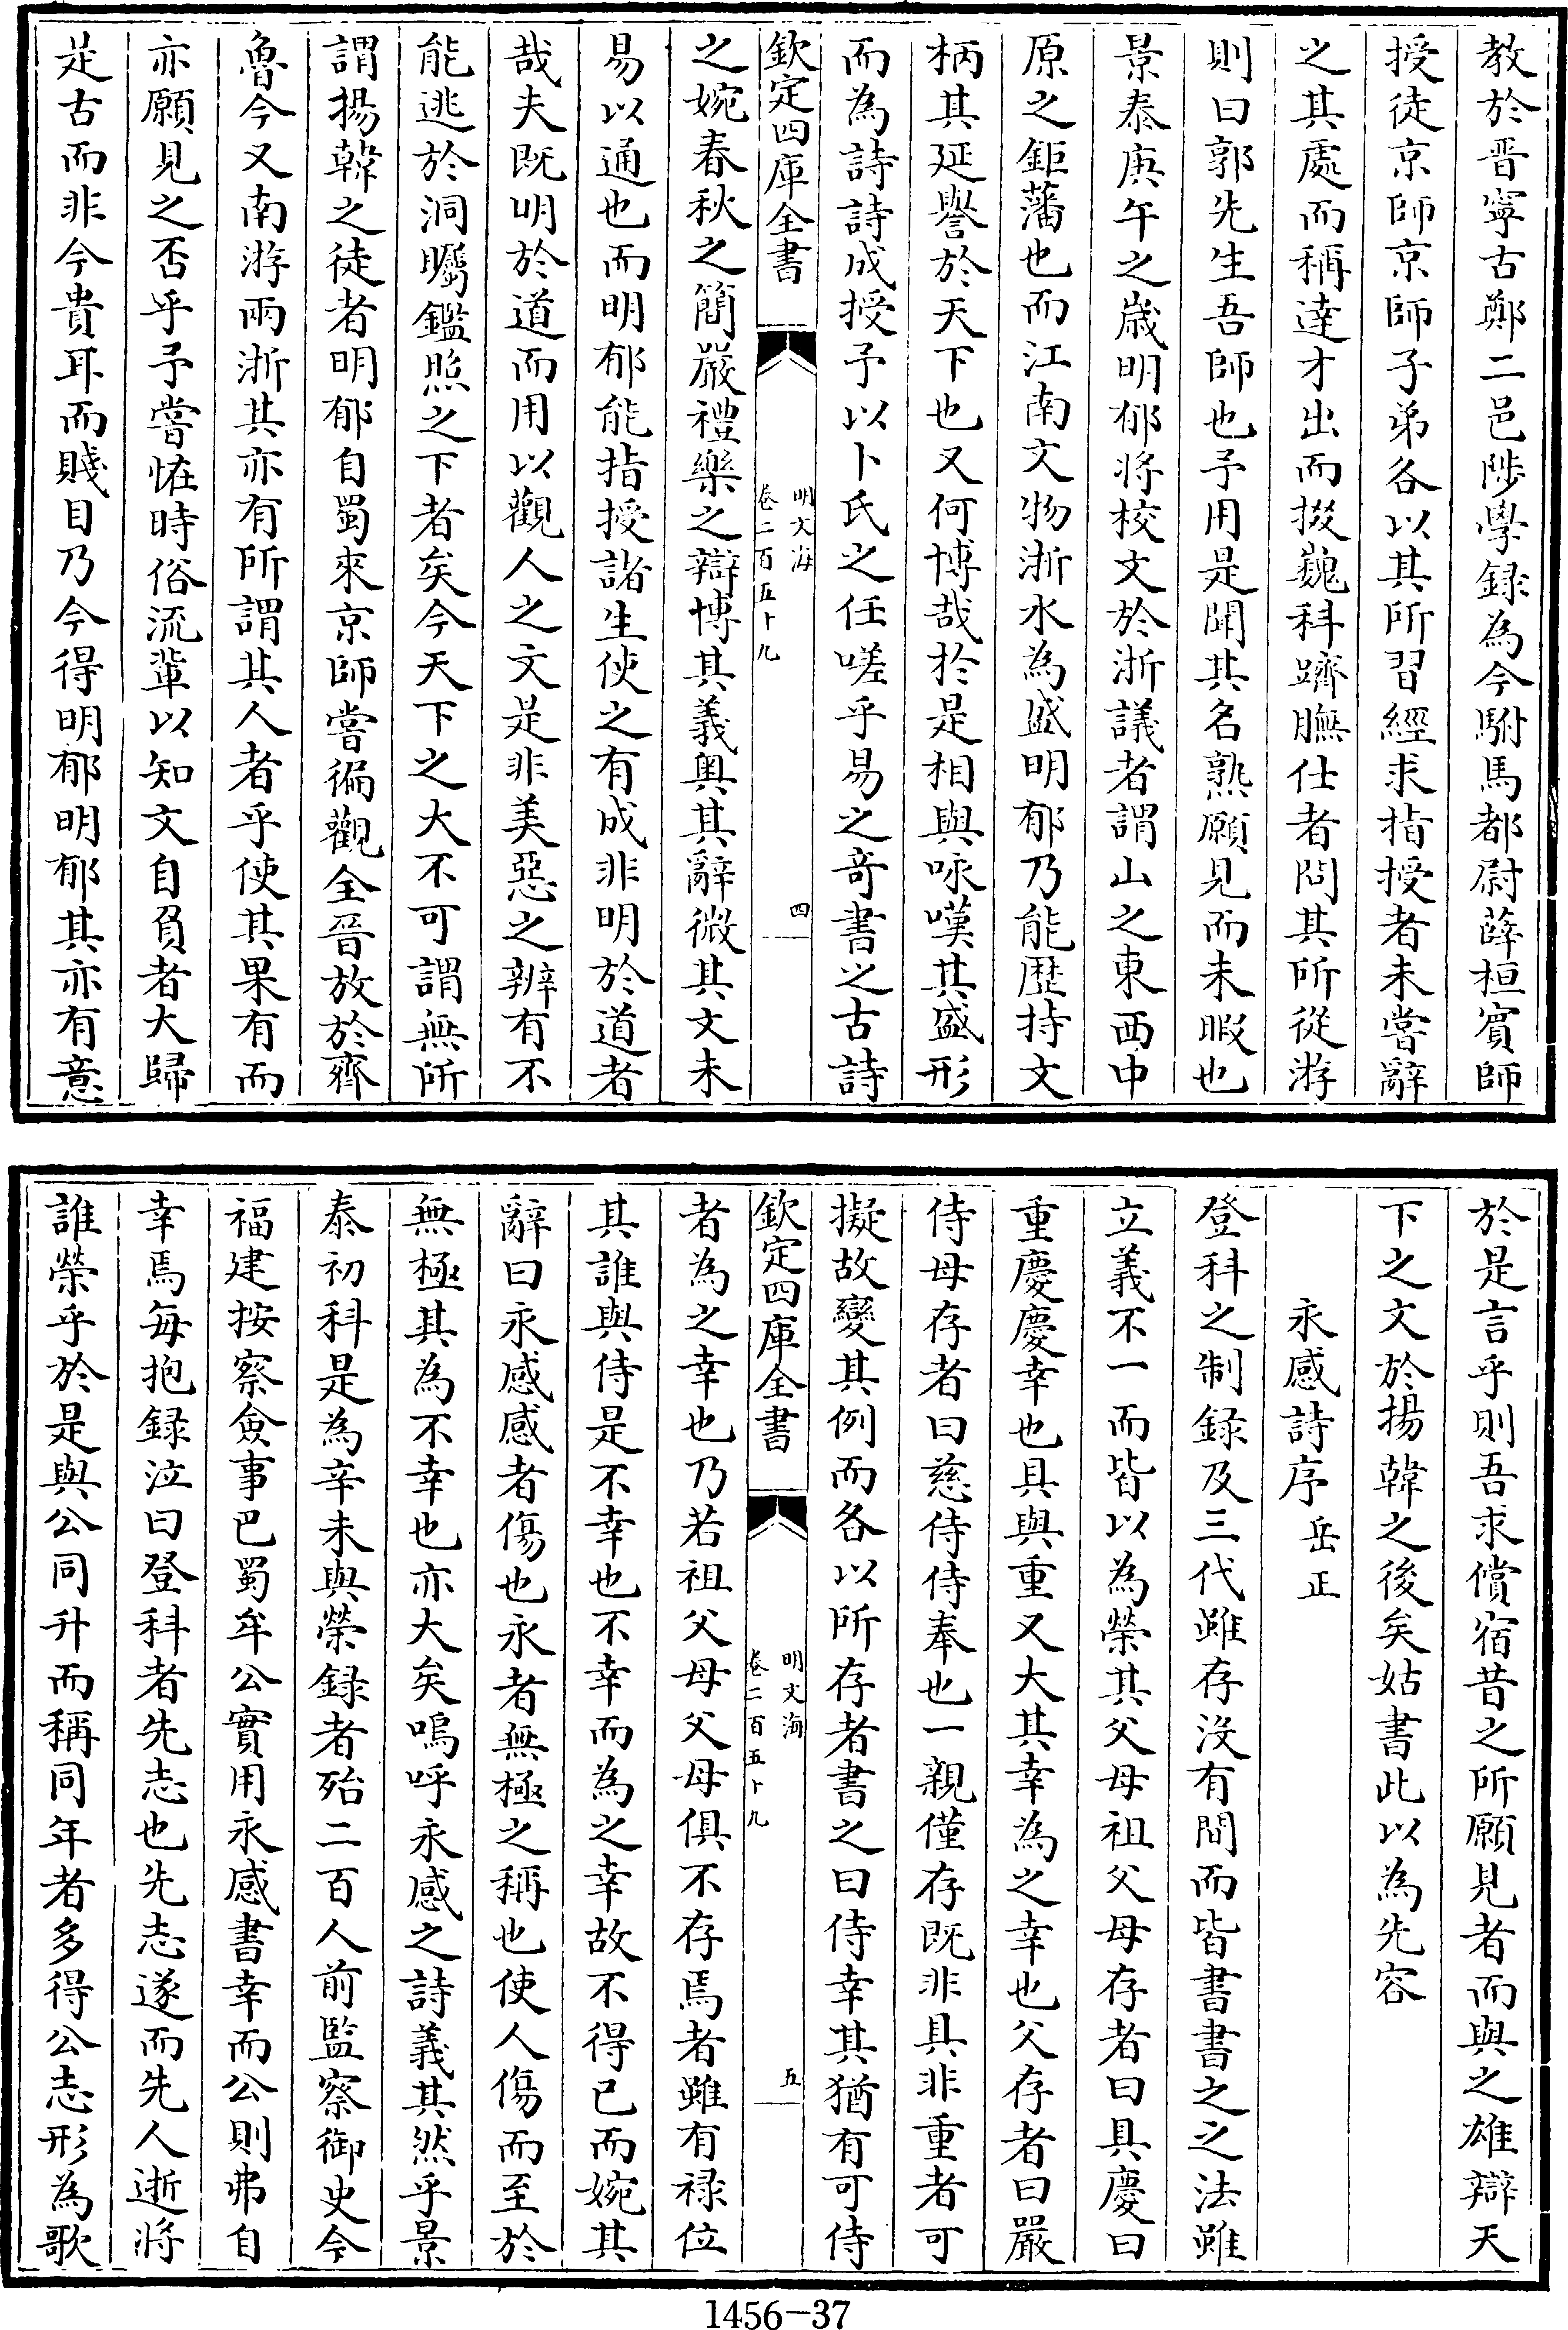 教於晋寧古鄭二邑陟學録為今駙馬都尉薛桓賓師
授徒京師京師子弟各以其所習經求指授者未嘗辭
之其處而稱達才出而掇巍科躋膴仕者問其所從游
則曰郭先生吾師也予用是聞其名熟願見而未暇也
景泰庚午之歲明郁將校文於浙議者謂山之東西中
原之鉅藩也而江南文物浙水為盛明郁乃能歴持文
柄其延譽於天下也又何博哉於是相與咏嘆其盛形
而為詩詩成授予以卜氏之任嗟乎易之竒書之古詩
欽定四庫全書
明文海
卷二百五十九
四
之婉春秋之簡嚴禮樂之辯博其義奥其辭微其文未
易以通也而明郁能指授諸生使之有成非明於道者
哉夫既明於道而用以觀人之文是非美惡之辨有不
能逃於洞矚鑑照之下者矣今天下之大不可謂無所
謂揚韓之徒者明郁自蜀來京師嘗徧觀全晉放於齊
魯今又南游兩浙其亦有所謂其人者乎使其果有而
亦願見之否乎予嘗恠時俗流輩以知文自負者大歸
是古而非今貴耳而賤目乃今得明郁明郁其亦有意
於是言乎則吾求償宿昔之所願見者而與之雄辯天
下之文於揚韓之後矣姑書此以為先容
永感詩序 岳正
登科之制録及三代雖存沒有間而皆書書之之法雖
立義不一而皆以為榮其父母祖父母存者曰具慶曰
重慶慶幸也具與重又大其幸為之幸也父存者曰嚴
侍母存者曰慈侍侍奉也一親僅存既非具非重者可
擬故變其例而各以所存者書之曰侍幸其猶有可侍
欽定四庫全書
明文海
卷二百五十九
五
者為之幸也乃若祖父母父母俱不存焉者雖有禄位
其誰與侍是不幸也不幸而為之幸故不得已而婉其
辭曰永感感者傷也永者無極之稱也使人傷而至於
無極其為不幸也亦大矣嗚呼永感之詩義其然乎景
泰初科是為辛未與榮録者殆二百人前監察御史今
福建按察僉事巴蜀牟公實用永感書幸而公則弗自
幸焉每抱録泣曰登科者先志也先志遂而先人逝將
誰榮乎於是與公同升而稱同年者多得公志形為歌
1456-37